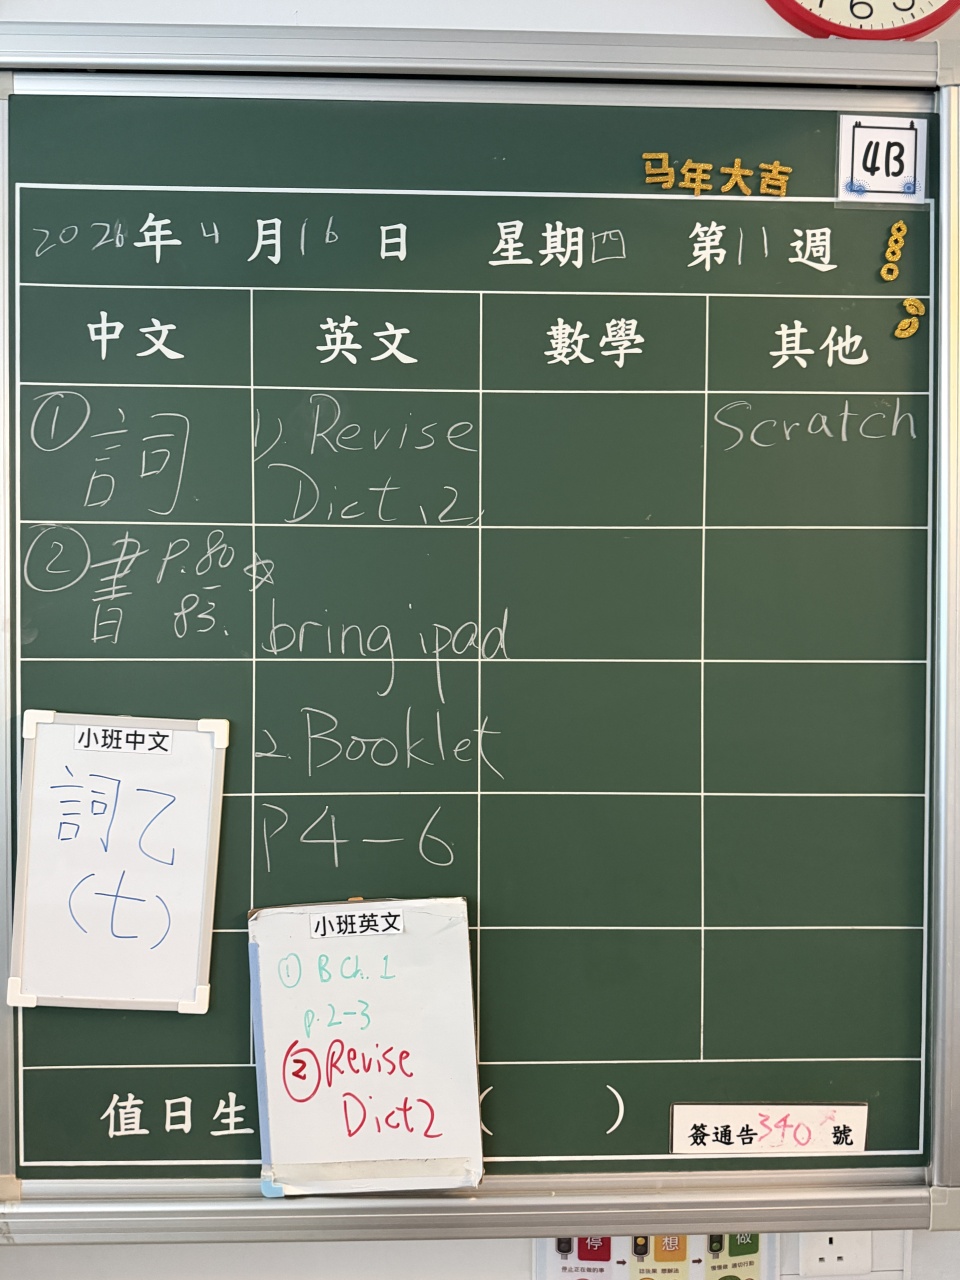 马年大吉
4B
2026年4月16日 星期四 第11週
中文 英文 數學 其他
① 詞
② 書 P.80-83.
1). Revise
Dict.2,
☆
bring ipad
2. Booklet
P4-6
Scratch
小班中文
詞乙
(七)
小班英文
① B Ch. 1
p.2-3
② Revise
Dict 2
值日生 ( )
簽通告340號
停 想 做